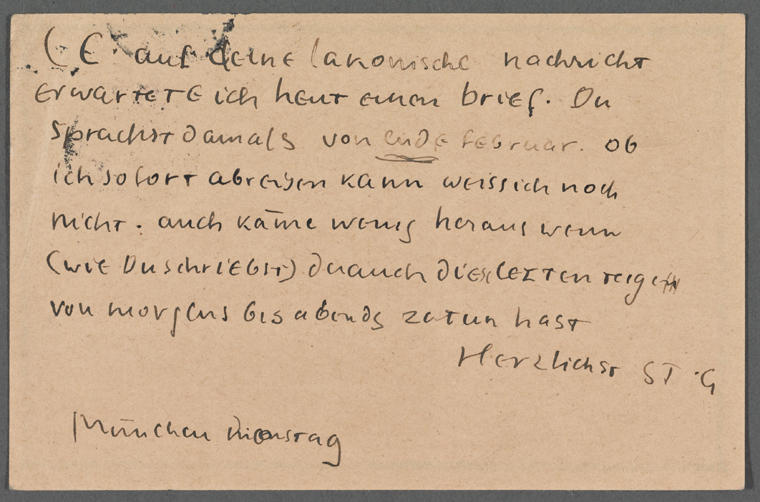 L E auf deine lakonische nachricht
erwartete ich heut einen brief. Du
sprachst damals von ende februar. ob
ich sofort abreisen kann weiss ich noch
nicht. auch käme wenig heraus wenn
(wie Du schriebst) du auch diese letzten
von morgens bis abends zu tun hast
Herzlichst ST. G
München dienstag